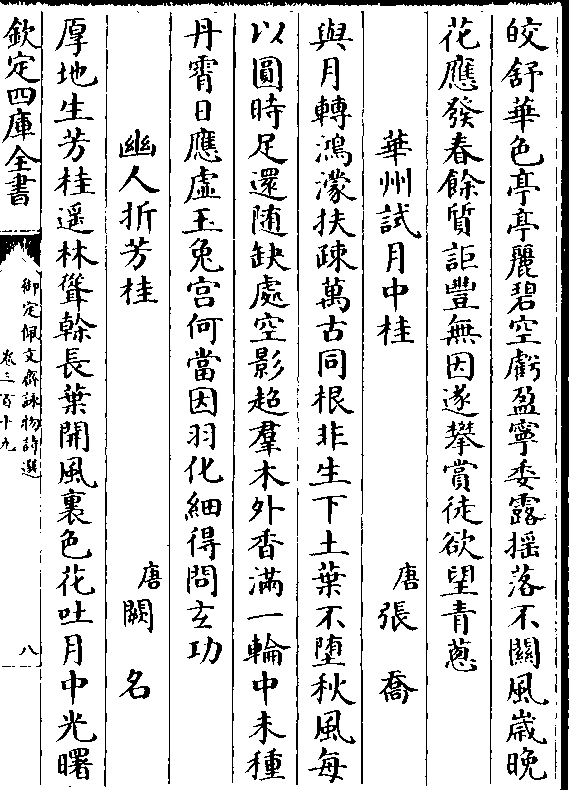 皎舒華色亭亭麗碧空虧盈寧委露揺落不關風嵗晚
花應發春餘質詎豐無因遂攀賞徒欲望青蔥
華州試月中桂
唐張喬
與月轉鴻濛扶疎萬古同根非生下土葉不墮秋風每
以圓時足還随缺處空影超羣木外香滿一輪中未種
丹霄日應虚玉兔宫何當因羽化細得問𤣥功
幽人折芳桂
唐闕名
厚地生芳桂遥林聳榦長葉開風裏色花吐月中光曙
欽定四庫全書
御定佩文齋詠物詩選
卷三百十九
八